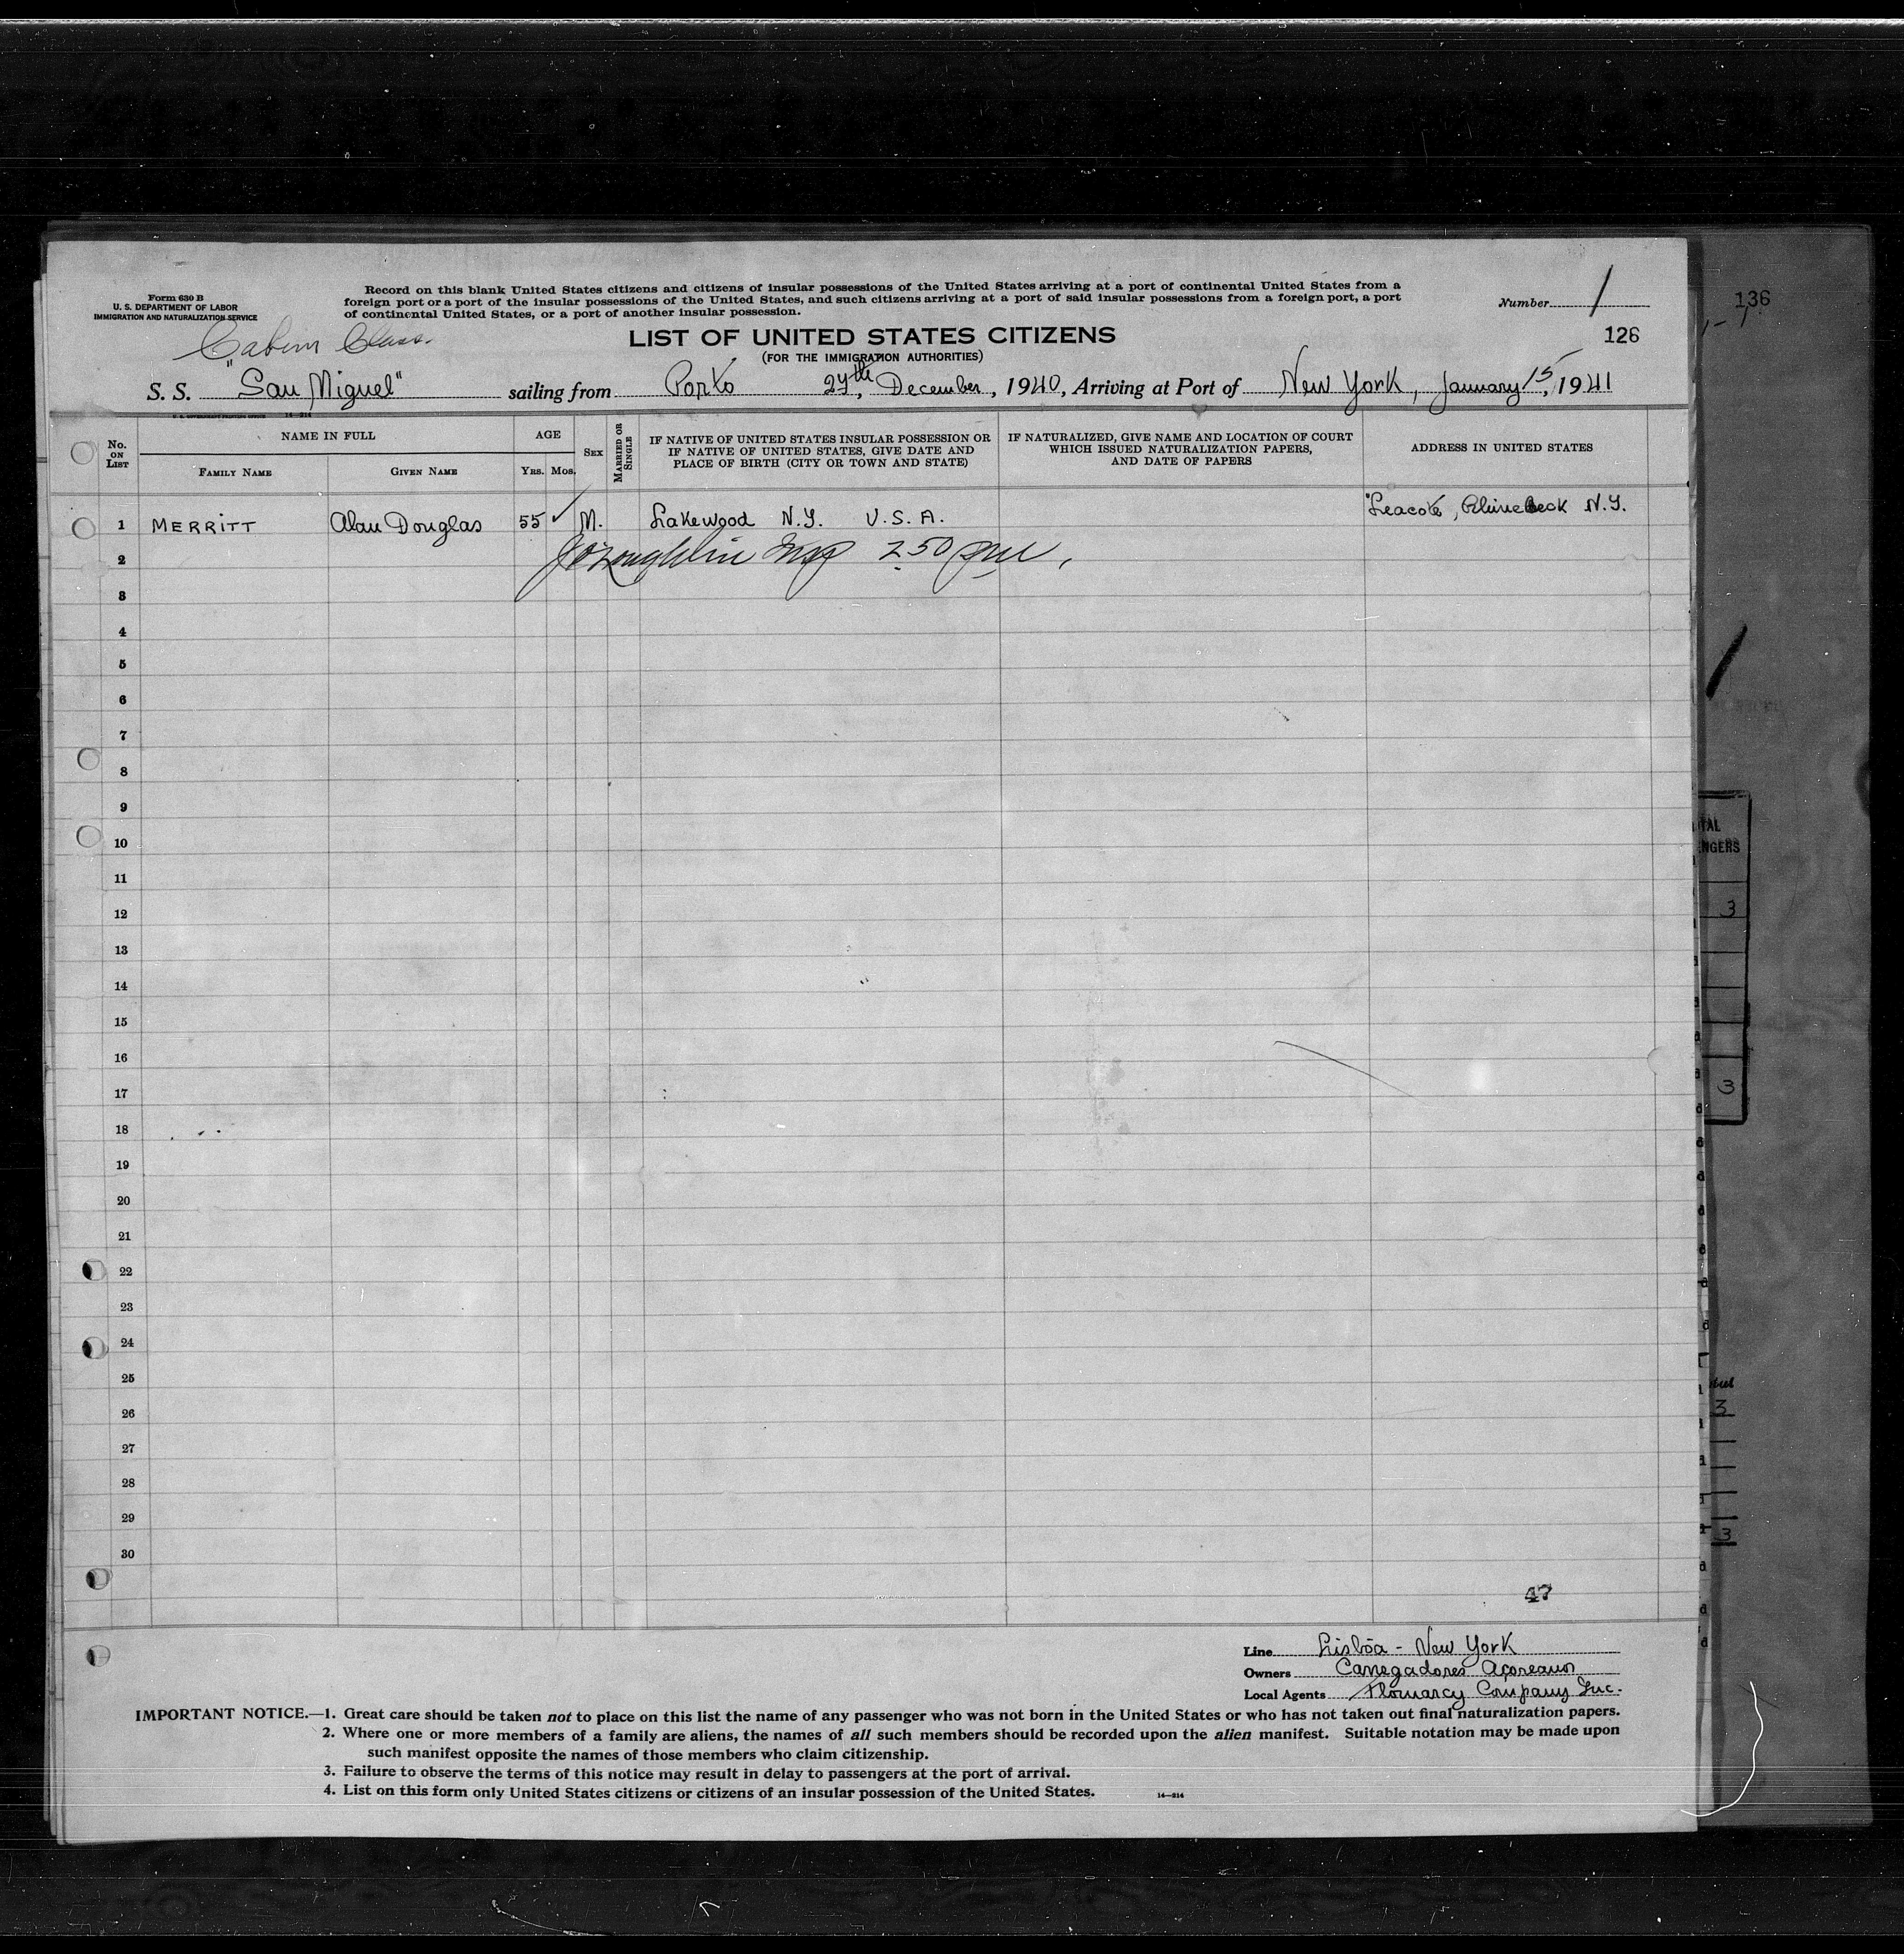 Form 630 B
U. S. DEPARTMENT OF LABOR
IMMIGRATION AND NATURALIZATION SERVICE
Cabin Class.
Record on this blank United States citizens and citizens of insular possessions of the United States arriving at a port of continental United States from a
foreign port or a port of the insular possessions of the United States, and such citizens arriving at a port of said insular possessions from a foreign port, a port
of continental United States, or a port of another insular possession.
Number 1
136
126
LIST OF UNITED STATES CITIZENS
(FOR THE IMMIGRATION AUTHORITIES)
S. S. "San Miguel" sailing from Porto 27th, December, 1940, Arriving at Port of New York, January 15, 1941
U. S. GOVERNMENT PRINTING OFFICE 14—214
No. ON LIST
NAME IN FULL
FAMILY NAME
GIVEN NAME
AGE
YRS. MOS.
SEX
MARRIED OR SINGLE
IF NATIVE OF UNITED STATES INSULAR POSSESSION OR
IF NATIVE OF UNITED STATES, GIVE DATE AND
PLACE OF BIRTH (CITY OR TOWN AND STATE)
IF NATURALIZED, GIVE NAME AND LOCATION OF COURT
WHICH ISSUED NATURALIZATION PAPERS,
AND DATE OF PAPERS
ADDRESS IN UNITED STATES
1 MERRITT Alan Douglas 55 M. Lakewood N.Y. U.S.A. Leacote, Rhinebeck N.Y.
2 Insp 2 50 pm
3
4
5
6
7
8
9
10
11
12
13
14
15
16
17
18
19
20
21
22
23
24
25
26
27
28
29
30
47
TAL
NGERS
3
3
3
3
Line Lisbôa - New York
Owners Carregadores Açoreanos
Local Agents Flomarcy Company Inc.
IMPORTANT NOTICE.—1. Great care should be taken not to place on this list the name of any passenger who was not born in the United States or who has not taken out final naturalization papers.
2. Where one or more members of a family are aliens, the names of all such members should be recorded upon the alien manifest. Suitable notation may be made upon
such manifest opposite the names of those members who claim citizenship.
3. Failure to observe the terms of this notice may result in delay to passengers at the port of arrival.
4. List on this form only United States citizens or citizens of an insular possession of the United States.
14—214